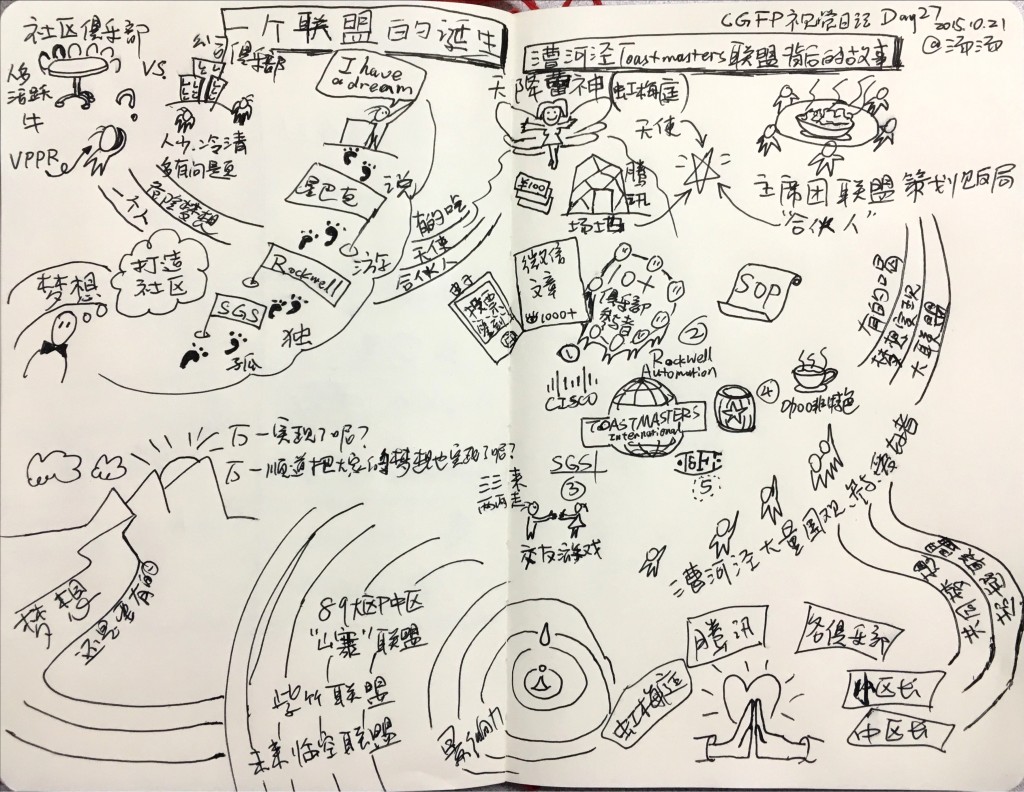 一个联盟的诞生
CGFP视觉日记 Day27
2015.10.21
@添添
漕河泾Toastmasters联盟背后的故事
社区俱乐部
人多
活跃
牛
VS.
公司
俱乐部
人少、冷清
多有问题
VPPR
I have
a dream
危险梦想
一个人
打造
社区
梦想
星巴克
Rockwell
SGS
说
游
独
孤
有的吃
天使
合伙人
天降雷神
虹梅庭
天使
¥100
腾讯
场地
主席团联盟策划饭局
"合伙人"
微信
文章
1000+
电子
投票
签到
10+
俱乐部
参与者
SOP
①
CISCO
②
Rockwell
Automation
TOASTMASTERS
International
④
咖啡特色
SGS
③
交友游戏
5
三三来
两两走
万一实现了呢？
万一顺道把大家的梦想也实现了呢？
梦想
还是要有的
漕河泾大量围观、参与者
有的吃
梦想实现
大联盟
89大区P中区
"山寨"联盟
紫竹联盟
未来临空联盟
影响力
虹梅庭
腾讯
各俱乐部
小区长
中区长